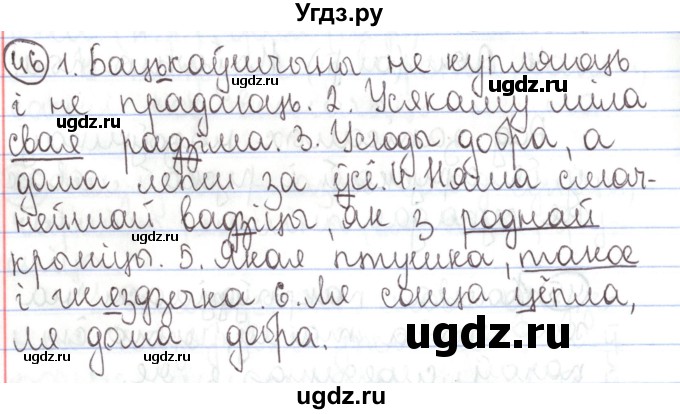 Угдз.ру
46 1. Бацькаўшчыны не купляюць
і не прадаюць. 2. Усякаму міла
свая радзіма. 3. Усюды добра, а
дома лепш за ўсё. 4. Няма смач-
нейшай вадзіцы, як з роднай
крыніцы. 5. Якая птушка, такое
і гняздзечка. 6. Ля сонца цёпла,
ля дома добра.
ugdz.ru
ugdz.ru
ugdz.ru
ugdz.ru
ugdz.ru
ugdz.ru
ugdz.ru
ugdz.ru
ugdz.ru
ugdz.ru
ugdz.ru
ugdz.ru
Угдз.ру